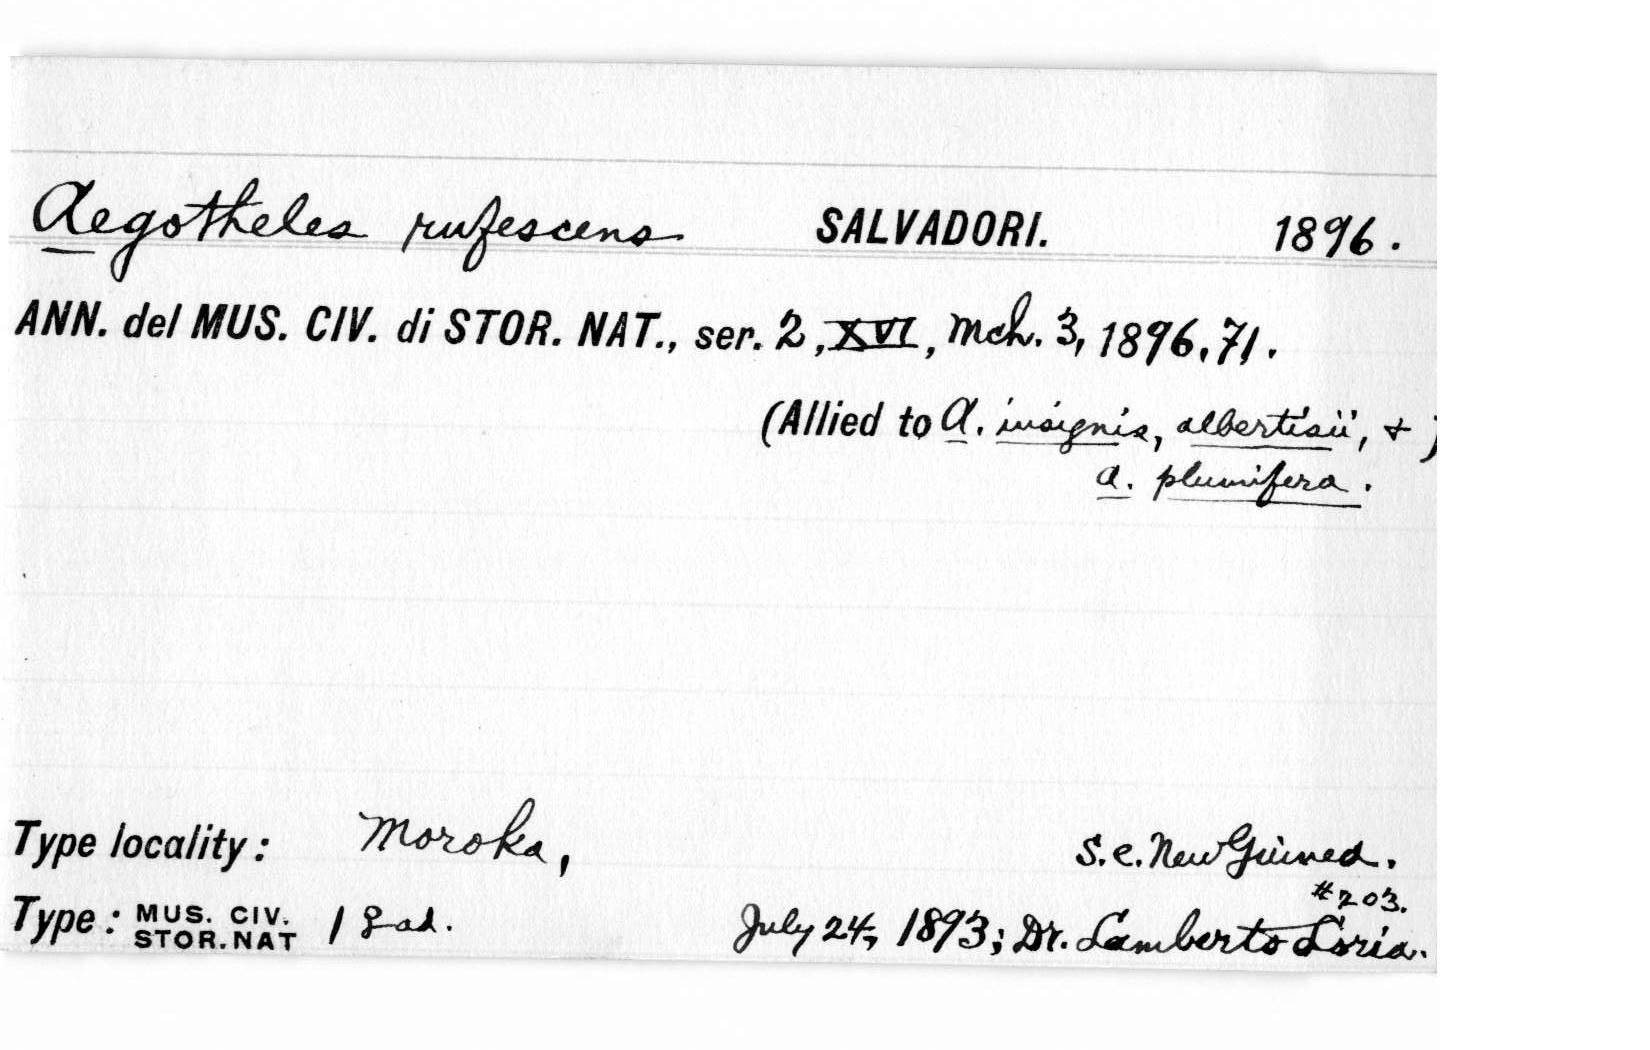 Aegotheles rufescens SALVADORI. 1896.
ANN. del MUS. CIV. di STOR. NAT., ser. 2, XVI, Mch. 3, 1896, 71.
(Allied to A. insignis, albertisii, + )
A. plumifera.
Type locality: Moroka, S.e. New Guinea.
#203.
Type: MUS. CIV. STOR. NAT 1 ♀ ad. July 24, 1893; Dr. Lamberto Loria.